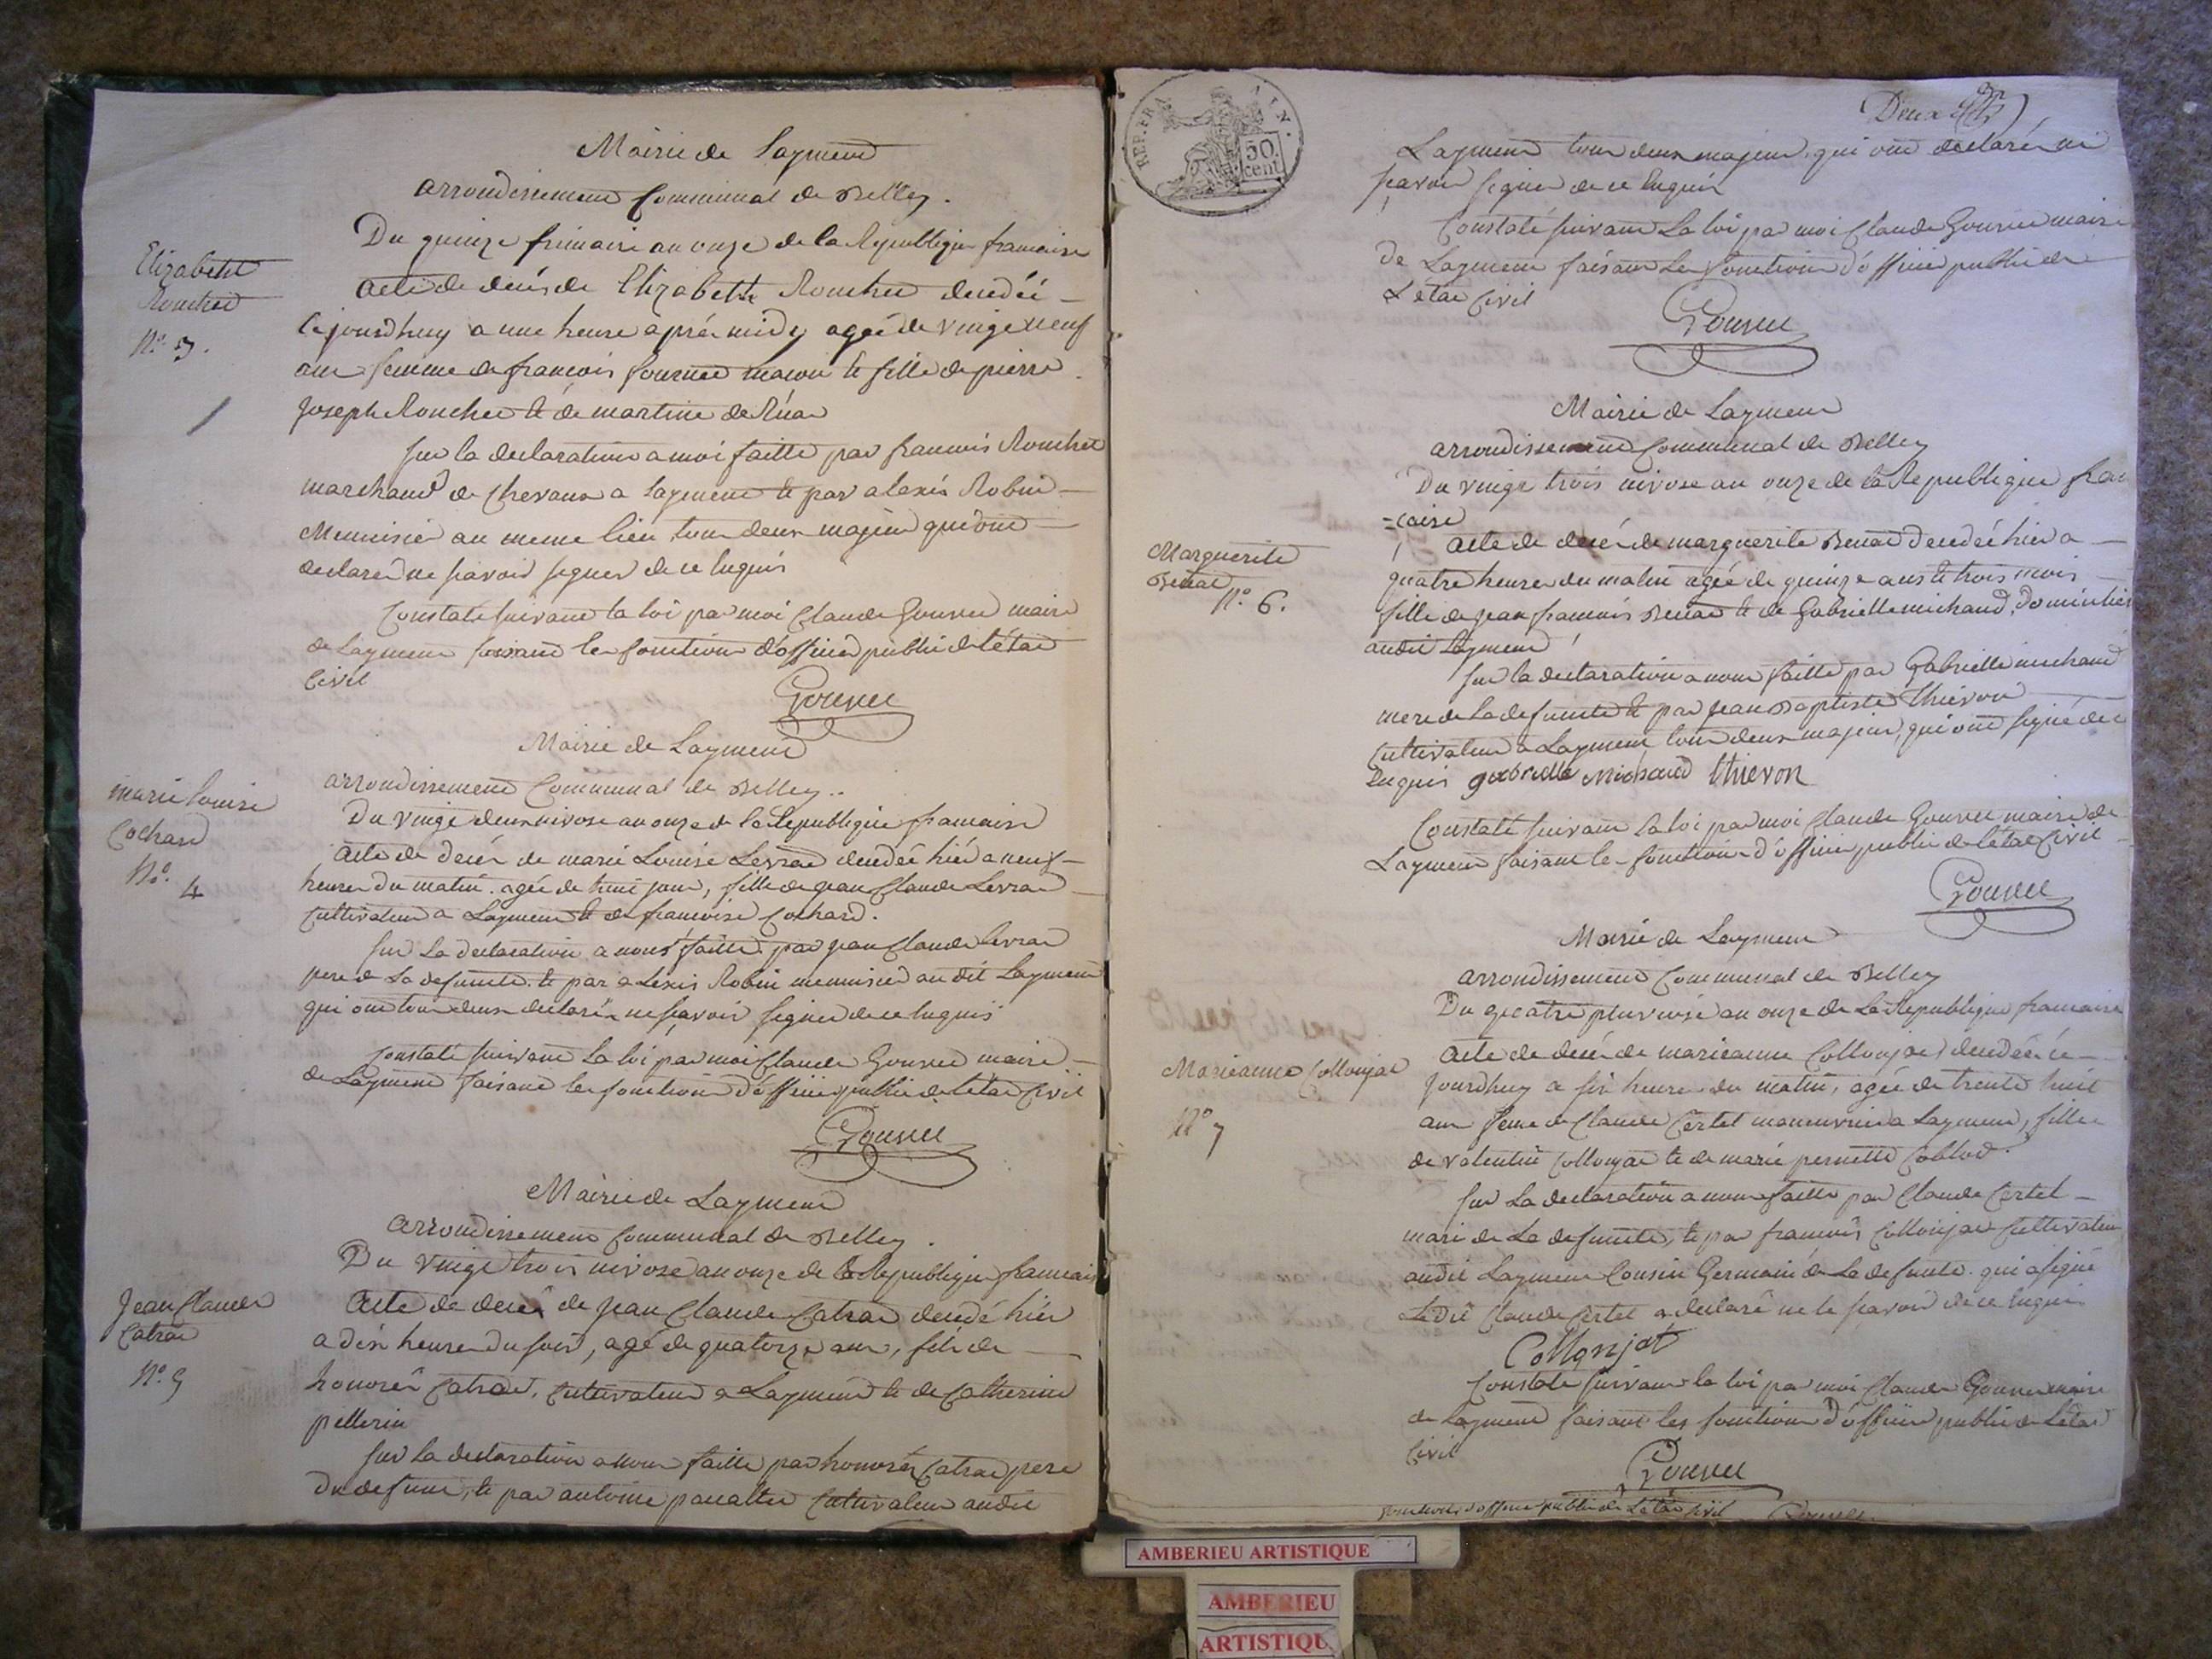 Mairie de Laymend
arrondissement Communal de Belley.
Elizabeth
Rouchet
N.º 3.
Du quinze frimaire an onze de la Republique francaise
acte de decés de Elizabeth Rouchet decedée
cejourdhuy a une heure aprés midy agée de vingt neuf
ans femme de francois fournet macon et fille de pierre
joseph Rouchet et de martine
sur la declaration a moi faitte par francois Rouchet
marchand de chevaux a laymend et par alexis Robin
Menuisier au meme lieu tous deux majeur qui ont
declarer ne scavoir signer de ce enquis
Constaté suivant la loi par moi Claude Gouvet maire
de Laymend faisant les fonctions d'officier public de létat
Civil
Gouvet
Mairie de Laymend
arrondissement Communal de Belley..
marie louise
Cochard
N.º 4
Du vingt deux nivose an onze de la Republique francaise
Acte de decés de marie Louise Levrat decedée hier a neuf
heures du matin. agée de huit jour, fille de jean Claude Levrat
Cultivateur a Laymend et de francoise Cochard.
sur La declaration a nous faitte par jean Claude Levrat
pere de La defunte. et par alexis Robin menuisier au dit Laymend
qui ont tous deux declarér ne scavoir signer de ce enquis
Constaté suivant La loi par moi Claude Gouvet maire
de Laymend faisant les fonctions d'officier public de létat Civil
Gouvet
Mairie de Laymend
arrondissement Communal de Belley.
Jean Claude
Catrat
N.º 5
Du vingt trois nivose an onze de la Republique francaise
Acte de decés de jean Claude Catrat decedé hier
a dix heures du soir, agé de quatorze ans, fils de
honoré Catrat, Cultivateur a Laymend et de Catherine
pellerin
sur la declaration a nous faitte par honoré Catrat pere
du defunt, et par antoine Cultivateur audit
REP. FRA
50
cent.
Deux
Laymend tous deux majeur, qui ont declarér ne
scavoir signer de ce enquis
Constaté suivant La loi par moi Claude Gouvet maire
de Laymend faisant Les fonctions d'officier public de
L'état Civil
Gouvet
Mairie de Laymend
arrondissement Communal de Belley
Du vingt trois nivose an onze de la Republique fran
=caise
Marguerite
Benat
N.º 6.
Acte de decés de marguerite Benat decedée hier a
quatre heures du matin agée de quinze ans et trois mois
fille de jean francois Benat et de Gabrielle michaud, domiciliés
audit Laymend
sur la declaration a nous faitte par Gabrielle michaud
mere de La defunte et par jean Baptiste Thievon
Cultivateur a Laymend tous deux majeur, qui ont signé de ce
enquis gabrielle Michaud thievon
Constaté suivant La loi par moi Claude Gouvet maire de
Laymend faisant les fonctions d'officier public de létat Civil
Gouvet
Mairie de Laymend
arrondissement Communal de Belley
Du quatre pluviose an onze de La Republique francaise
Marieanne Collonjat
N.º 7
Acte de decés de marieanne Collonjat decedée ce
jourdhuy a six heures du matin, agée de trente huit
ans feme de Claude Certet manouvrier a Laymend, fille
de valentin Collonjat et de marie pernette
sur La declaration a nous faitte par Claude Certet
mari de La defunte, et par francois Collonjat Cultivateur
audit Laymend Cousin Germain de La defunte. qui a signé
Ledit Claude Certet a declaré ne le scavoir de ce enquis
Collonjat
Constaté suivant la loi par moi Claude Gouvet maire
de Laymend faisant les fonctions d'officier public de L'état
Civil
Gouvet
fonctions d'officier public de L'état Civil Gouvet
AMBERIEU ARTISTIQUE
AMBERIEU
ARTISTIQU